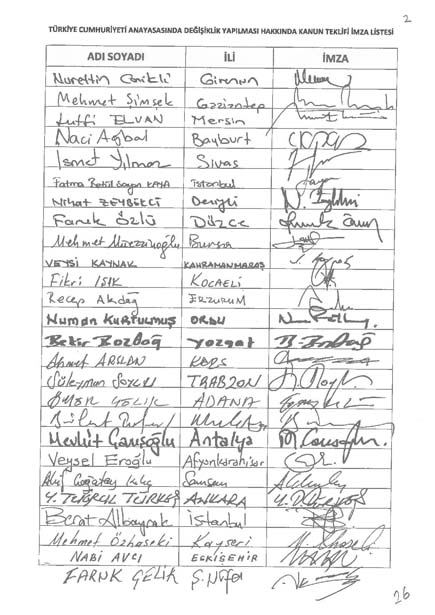 2
TÜRKİYE CUMHURİYETİ ANAYASASINDA DEĞİŞİKLİK YAPILMASI HAKKINDA KANUN TEKLİFİ İMZA LİSTESİ
ADI SOYADI İLİ İMZA
Nurettin Canikli Giresun
Mehmet Şimşek Gaziantep
Lütfi ELVAN Mersin
Naci Ağbal Bayburt
İsmet Yılmaz Sivas
Fatma Betül Sayan KAYA İstanbul
Nihat ZEYBEKCİ Denizli
Faruk Özlü Düzce
Mehmet Müezzinoğlu Bursa
VEYSİ KAYNAK KAHRAMANMARAŞ
Fikri IŞIK KOCAELİ
Recep Akdağ ERZURUM
Numan KURTULMUŞ ORDU
Bekir Bozdağ Yozgat
Ahmet ARSLAN KARS
Süleyman SOYLU TRABZON
ÖMER ÇELİK ADANA
Mevlüt Çavuşoğlu Antalya
Veysel Eroğlu Afyonkarahisar
Akif Çağatay Kılıç Samsun
Y. TUĞRUL TÜRKEŞ ANKARA
Berat Albayrak İstanbul
Mehmet Özhaseki Kayseri
NABİ AVCI ESKİŞEHİR
FARUK ÇELİK Ş.Urfa
26